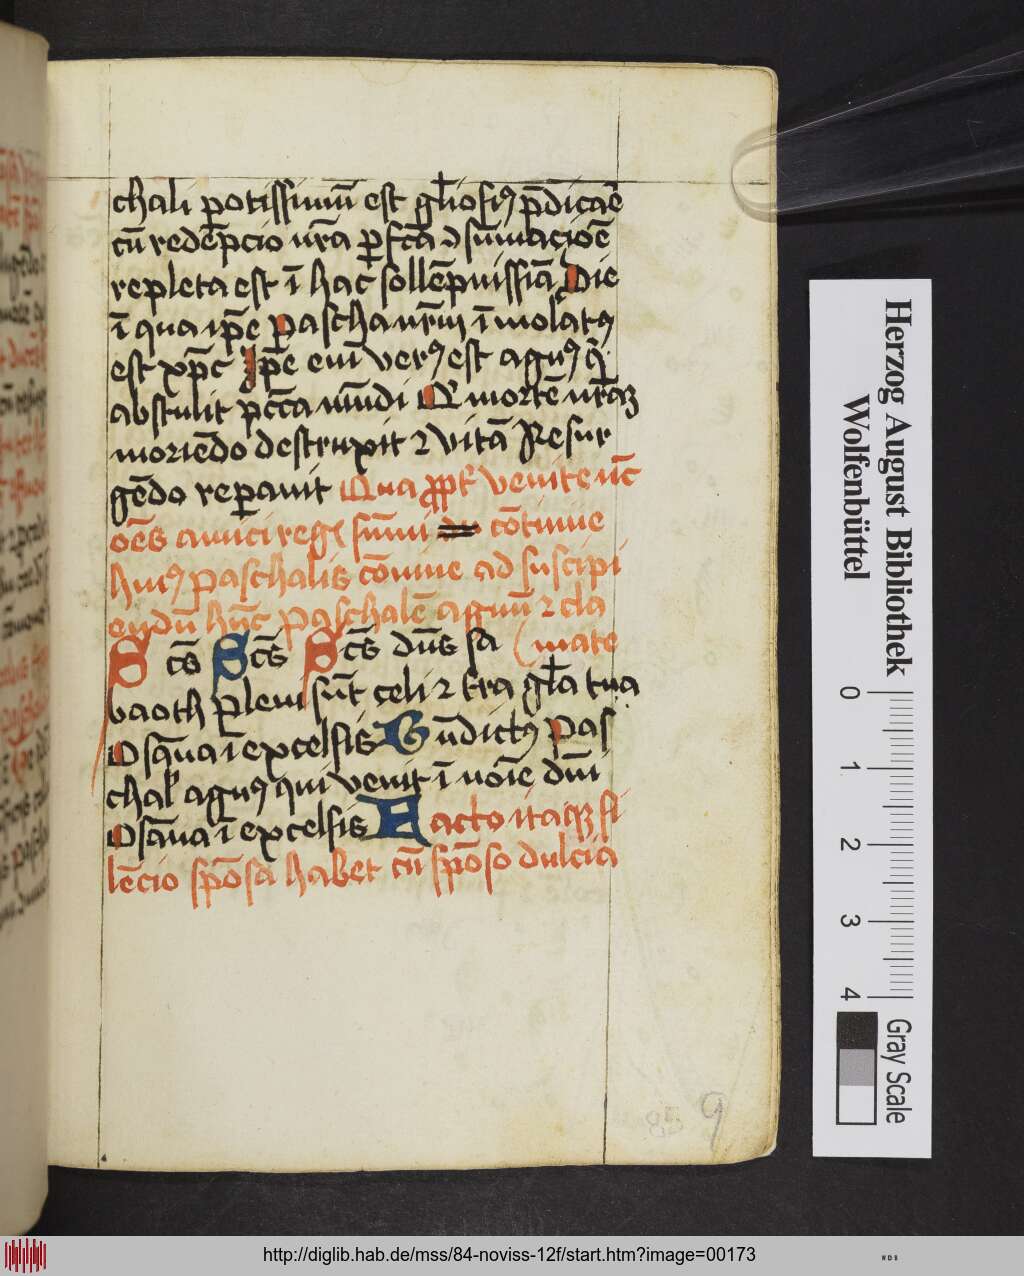 chali potissimū est gl̄iosiꝰ p̄dicar̄e
cū redēpcio nr̄a ꝑfc̄a ⁊ sūmacioe
repleta est ī hac sollēpnissīa Die
ī qua ip̄e Pascha nr̄m īmolatꝰ
est xp̄c Ip̄e em̄ verꝰ est agnꝰ q̄
abstulit pctā mūdi Q mortē nr̄aꝫ
moriēdo destruxit ⁊ vitā Resur
gēdo reparauit Qua ꝓpt̄ venite nc̄
oēs amici regꝭ sūmi cōtinue
huiꝰ paschalis cōuiue ad suscipi
endū hūc Paschalē agnū ⁊ cla
mate
Scs̄ Scs̄ Scs̄ dn̄s sa
baoth pleni sūt celi ⁊ tr̄a gl̄a tua
Osāna ī excelsis Bn̄dictꝰ Pas
chal̄ agnꝰ qui venit ī noīe dn̄i
Osāna ī excelsis Facto itaqꝫ si
lēcio spōsa habet cū spōso dulcia
85 9
Herzog August Bibliothek
Wolfenbüttel
0 1 2 3 4
Gray Scale
http://diglib.hab.de/mss/84-noviss-12f/start.htm?image=00173